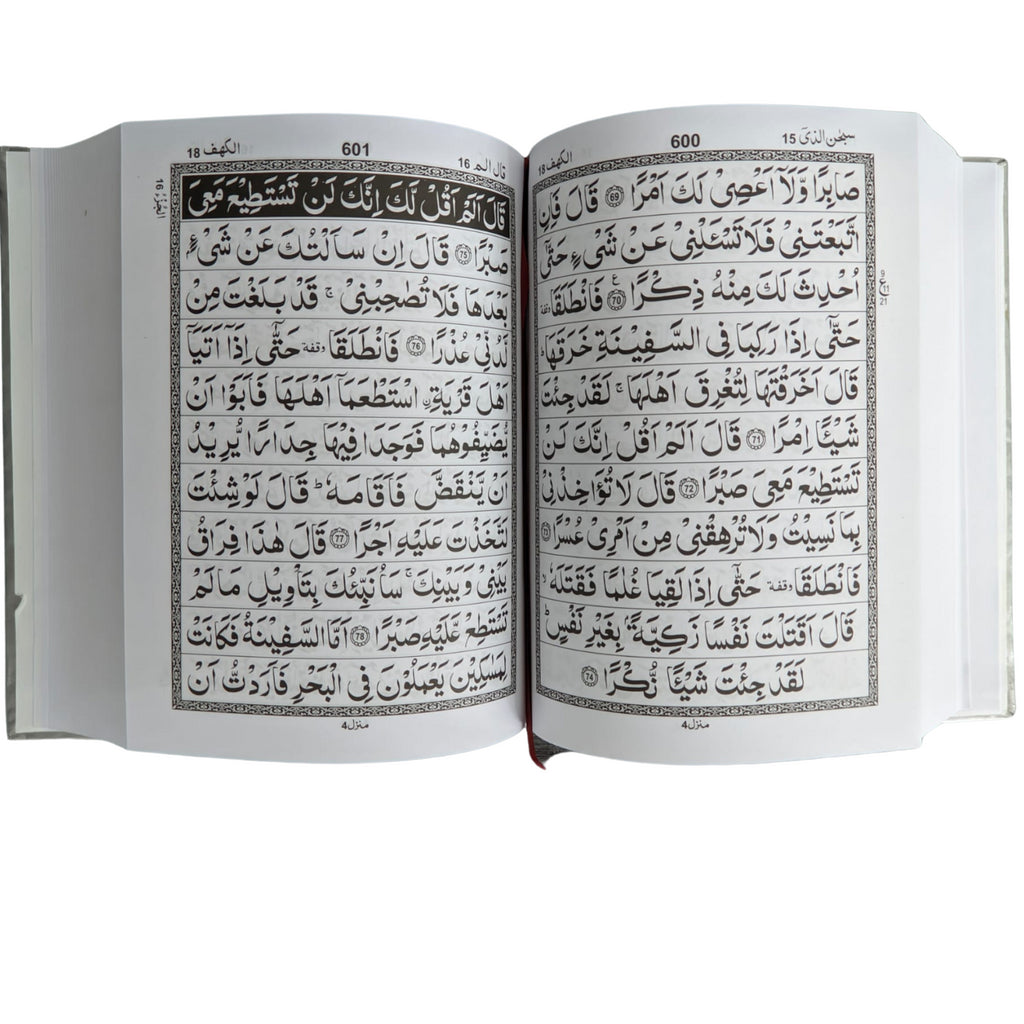 سبحٰن الذیٓ 15
600
الکھف 18
صَابِرًا وَّلَاۤ اَعْصِیْ لَكَ اَمْرًا ﴿69﴾ قَالَ فَاِنِ
اتَّبَعْتَنِیْ فَلَا تَسْـَٔلْنِیْ عَنْ شَیْءٍ حَتّٰۤی
اُحْدِثَ لَكَ مِنْهُ ذِكْرًا ﴿70﴾ ع فَانْطَلَقَا وقفة
حَتّٰۤی اِذَا رَكِبَا فِی السَّفِیْنَةِ خَرَقَهَا ؕ
قَالَ اَخَرَقْتَهَا لِتُغْرِقَ اَهْلَهَا ۚ لَقَدْ جِئْتَ
شَیْـًٔا اِمْرًا ﴿71﴾ قَالَ اَلَمْ اَقُلْ اِنَّكَ لَنْ
تَسْتَطِیْعَ مَعِیَ صَبْرًا ﴿72﴾ قَالَ لَا تُؤَاخِذْنِیْ
بِمَا نَسِیْتُ وَلَا تُرْهِقْنِیْ مِنْ اَمْرِیْ عُسْرًا ﴿73﴾
فَانْطَلَقَا وقفة حَتّٰۤی اِذَا لَقِیَا غُلٰمًا فَقَتَلَهٗ ۙ
قَالَ اَقَتَلْتَ نَفْسًا زَكِیَّةًۢ بِغَیْرِ نَفْسٍ ؕ
لَقَدْ جِئْتَ شَیْـًٔا نُّكْرًا ﴿74﴾
منزل 4
9
ع 11
21
قال الم 16
601
الکھف 18
الجزء 16
قَالَ اَلَمْ اَقُلْ لَّكَ اِنَّكَ لَنْ تَسْتَطِیْعَ مَعِیَ
صَبْرًا ﴿75﴾ قَالَ اِنْ سَاَلْتُكَ عَنْ شَیْءٍۭ
بَعْدَهَا فَلَا تُصٰحِبْنِیْ ۚ قَدْ بَلَغْتَ مِنْ
لَّدُنِّیْ عُذْرًا ﴿76﴾ فَانْطَلَقَا وقفة حَتّٰۤی اِذَاۤ اَتَیَاۤ
اَهْلَ قَرْیَةِ ۣاسْتَطْعَمَاۤ اَهْلَهَا فَاَبَوْا اَنْ
یُّضَیِّفُوْهُمَا فَوَجَدَا فِیْهَا جِدَارًا یُّرِیْدُ
اَنْ یَّنْقَضَّ فَاَقَامَهٗ ؕ قَالَ لَوْ شِئْتَ
لَتَّخَذْتَ عَلَیْهِ اَجْرًا ﴿77﴾ قَالَ هٰذَا فِرَاقُ
بَیْنِیْ وَبَیْنِكَ ۚ سَاُنَبِّئُكَ بِتَاْوِیْلِ مَا لَمْ
تَسْتَطِعْ عَّلَیْهِ صَبْرًا ﴿78﴾ اَمَّا السَّفِیْنَةُ فَكَانَتْ
لِمَسٰكِیْنَ یَعْمَلُوْنَ فِی الْبَحْرِ فَاَرَدْتُّ اَنْ
منزل 4